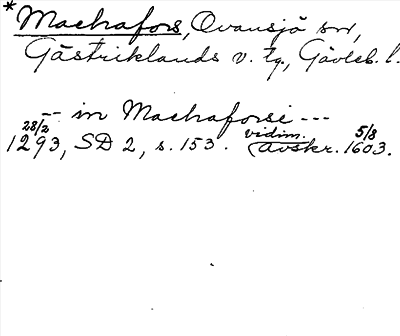 *Machafors, Ovansjö sn,
Gästriklands v. tg., Gävleb. l.
-- in Machaforse ---
28/2 1293, SD 2, s. 153. vidim. avskr. 5/8 1603.